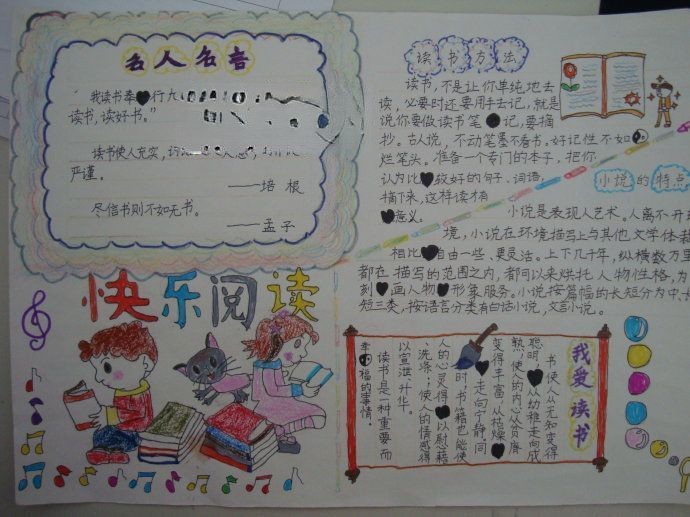 名人名言
"我读书奉行九
读书,读好书。"
读书使人充实,
严谨。
——培根
尽信书则不如无书。
——孟子
快乐阅读
读书方法
读书,不是让你单纯地去
读,必要时还要用手去记,就是
说你要做读书笔记,要摘
抄。古人说,不动笔墨不看书。好记性不如
烂笔头。准备一个专门的本子,把你
认为比较好的句子、词语,
摘下来,这样读才有
意义。
小说的特点
小说是表现人艺术。人离不开
境,小说在环境描写上与其他文学体裁
相比自由一些、更灵活。上下几十年,纵横数万里
都在描写的范围之内,都可以来烘托人物性格,为
刻画人物形象服务。小说按篇幅的长短分为中、
短三类,按语言分类有白话小说,文言小说。
我爱读书
书使人从无知变得
聪明,从幼稚走向成
熟,使人的内心从贫瘠
变得丰富,从枯燥
走向宁静,同
时,书籍也能使
人的心灵得以慰藉
、洗涤;使人的情感得
以宣泄、升华。
读书是一种重要而
幸福的事情。